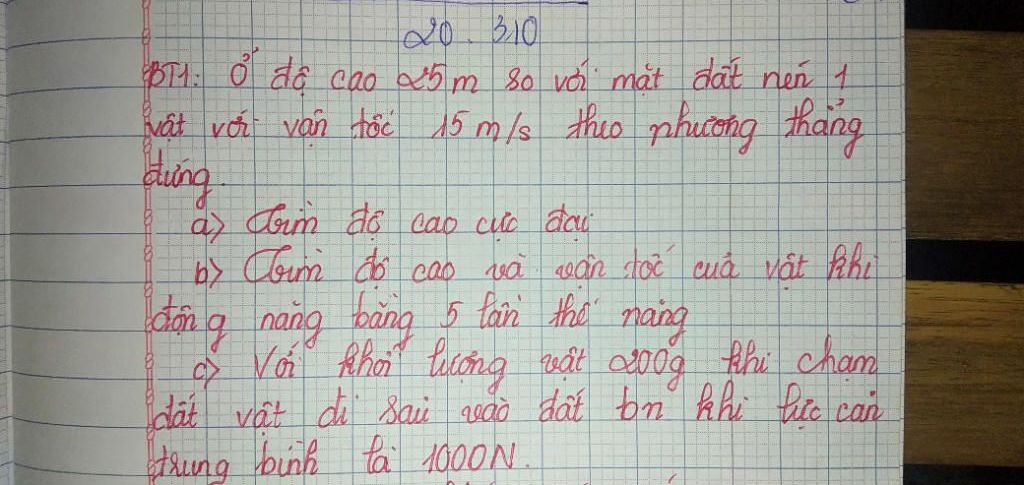 20. 310
BT1: Ở độ cao 25m so với mặt đất nén 1
vật với vận tốc 15m/s theo phương thẳng
đứng.
a) Tìm độ cao cực đại
b) Tìm độ cao và vận tốc của vật khi
động năng bằng 5 lần thế năng
c) Với khối lượng vật 200g khi chạm
đất vật đi sâu vào đất bn khi lực cản
trung bình là 1000N.